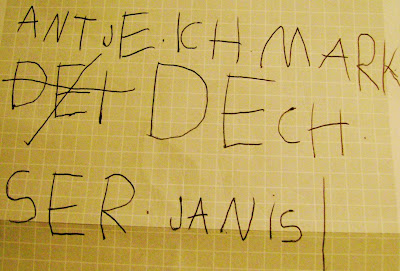 ANTJE. ICH. MARK
DET DECH.
SER. JANIS